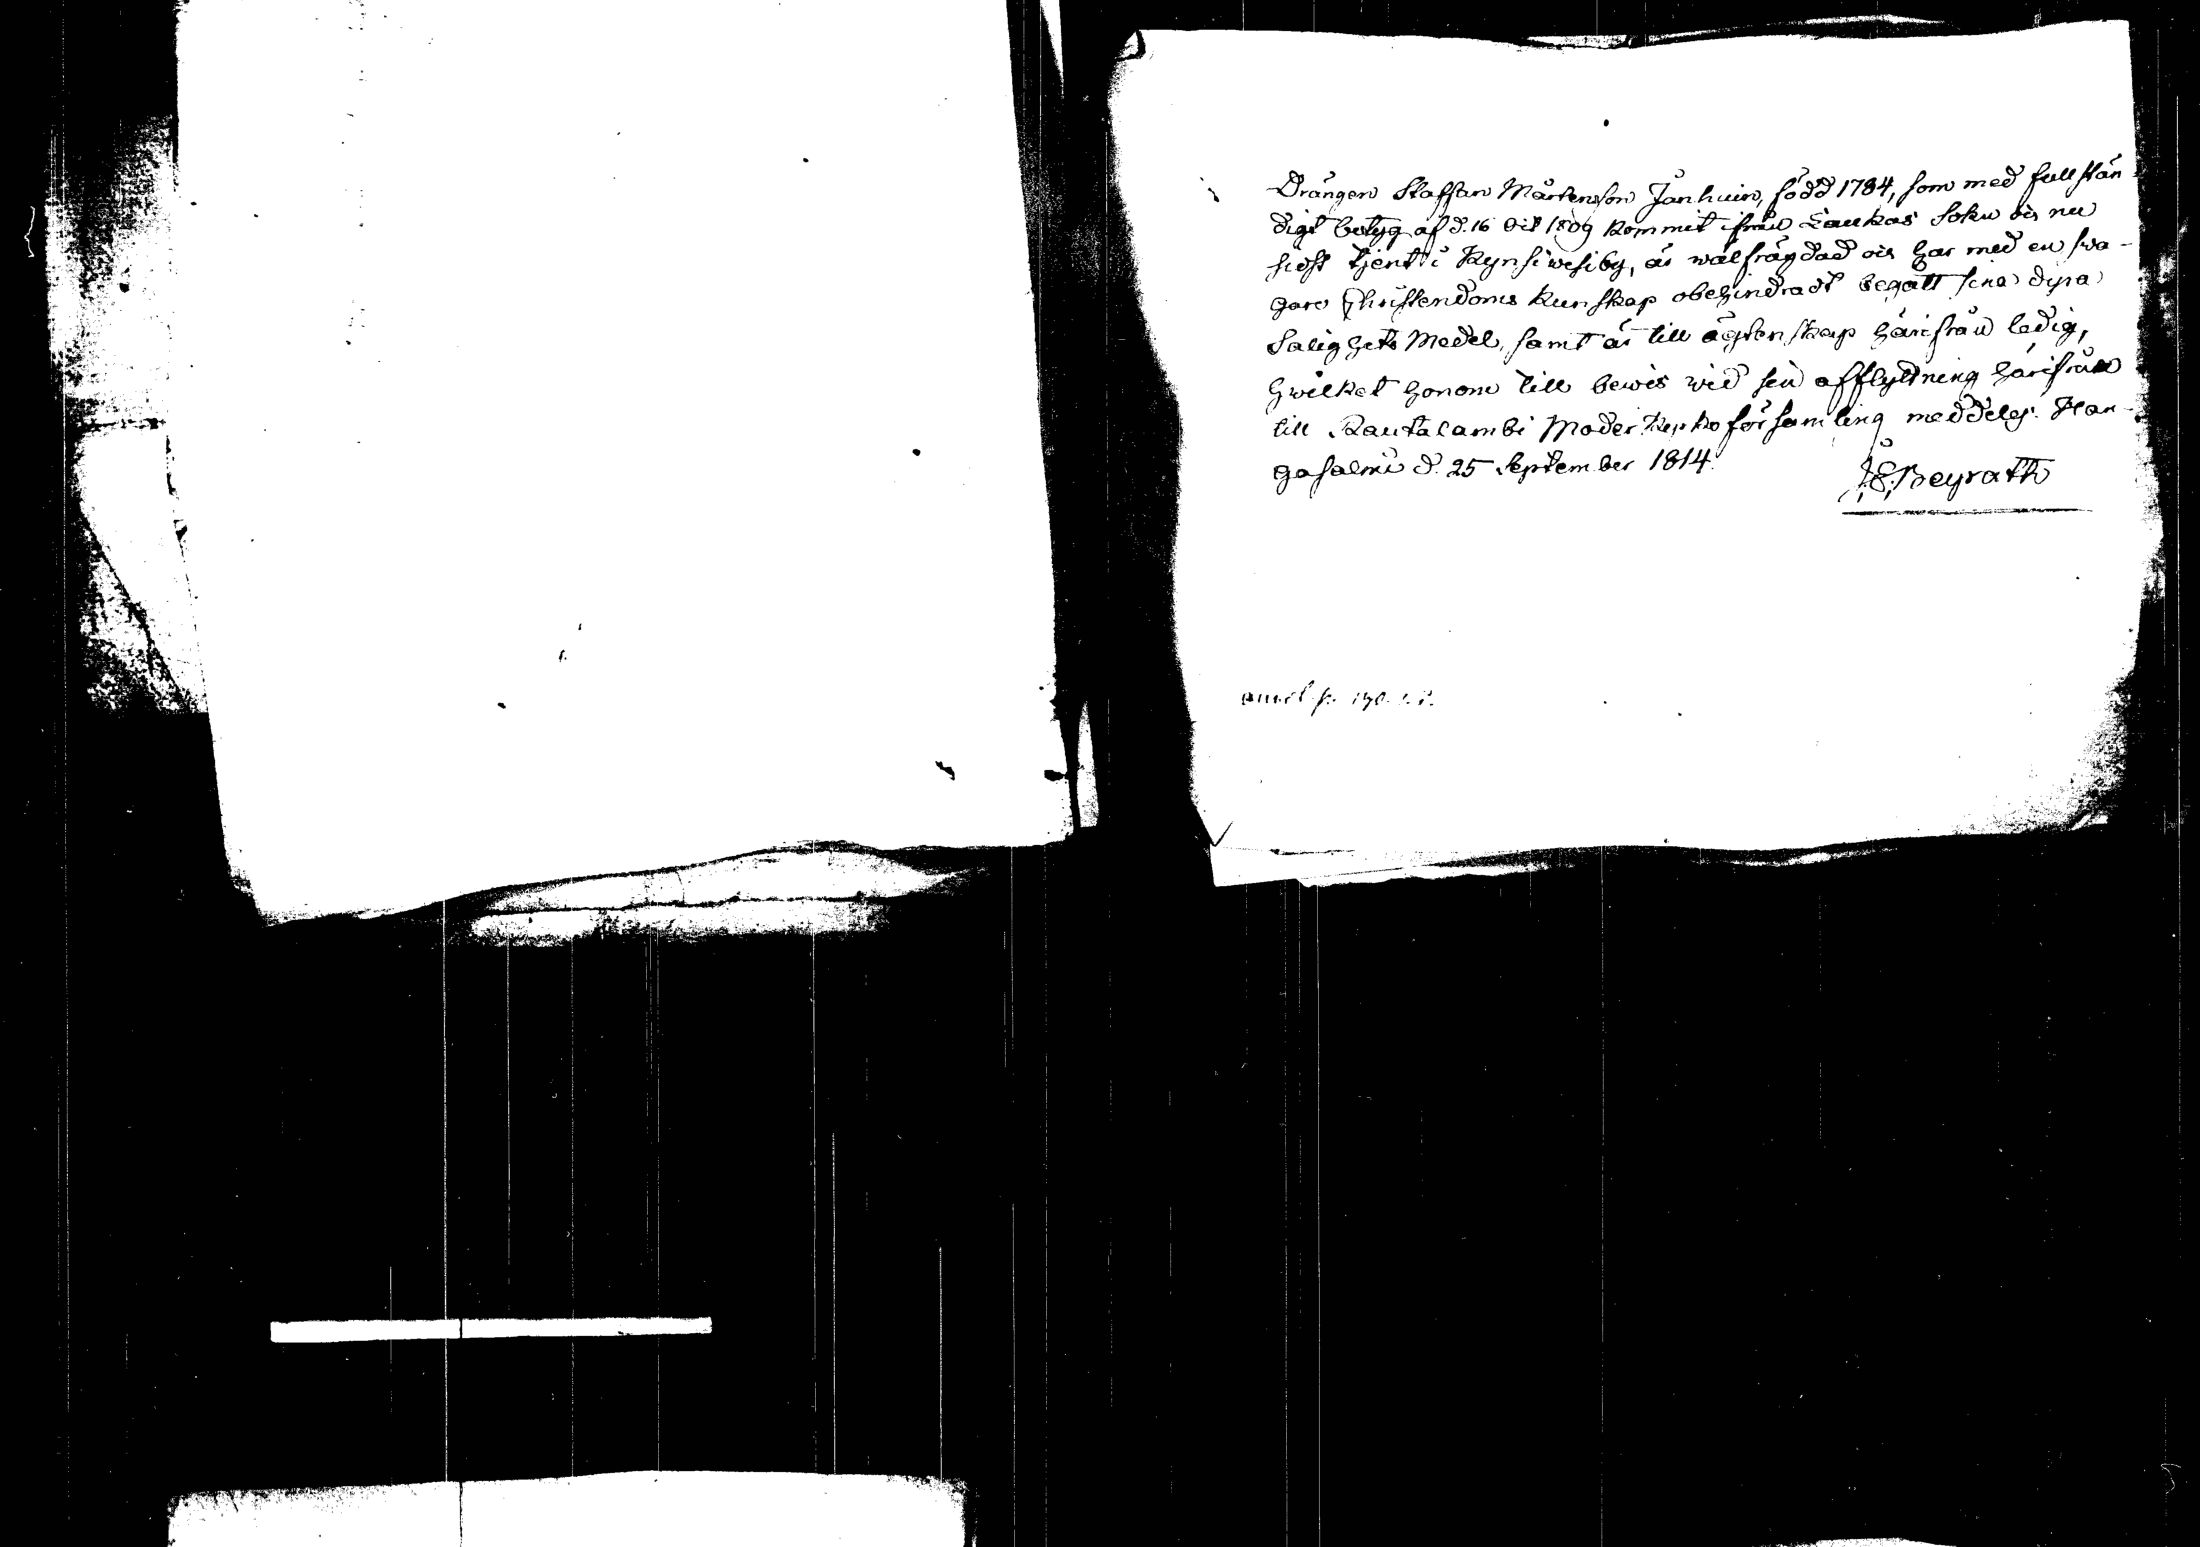 Drängen Staffan Mårtensson Janhuin, född 1784, som med fullstän-
digt betyg af d. 16 Oct 1809 kommit ifrån Laukas Sokn och nu
sidst tjent i Kynsiwesi by, är wälfrägdad och har med en swa-
gare Christendoms kunskap obehindradt begått sina dyra
Salighets Medel, samt är till ägtenskap härifrån ledig,
hwilket honom till bewis wid sin afflyttning härifrån
till Rautalambi Moderkyrko församling meddeles. Han-
gasalmi d. 25 September 1814.
J.E. Beyrath
p. 190.